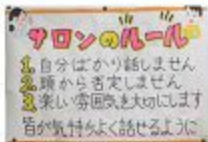 サロンのルール
1. 自分ばかり話しません
2. 頭から否定しません
3. 楽しい雰囲気を大切にします
皆が気持ちよく話せるように